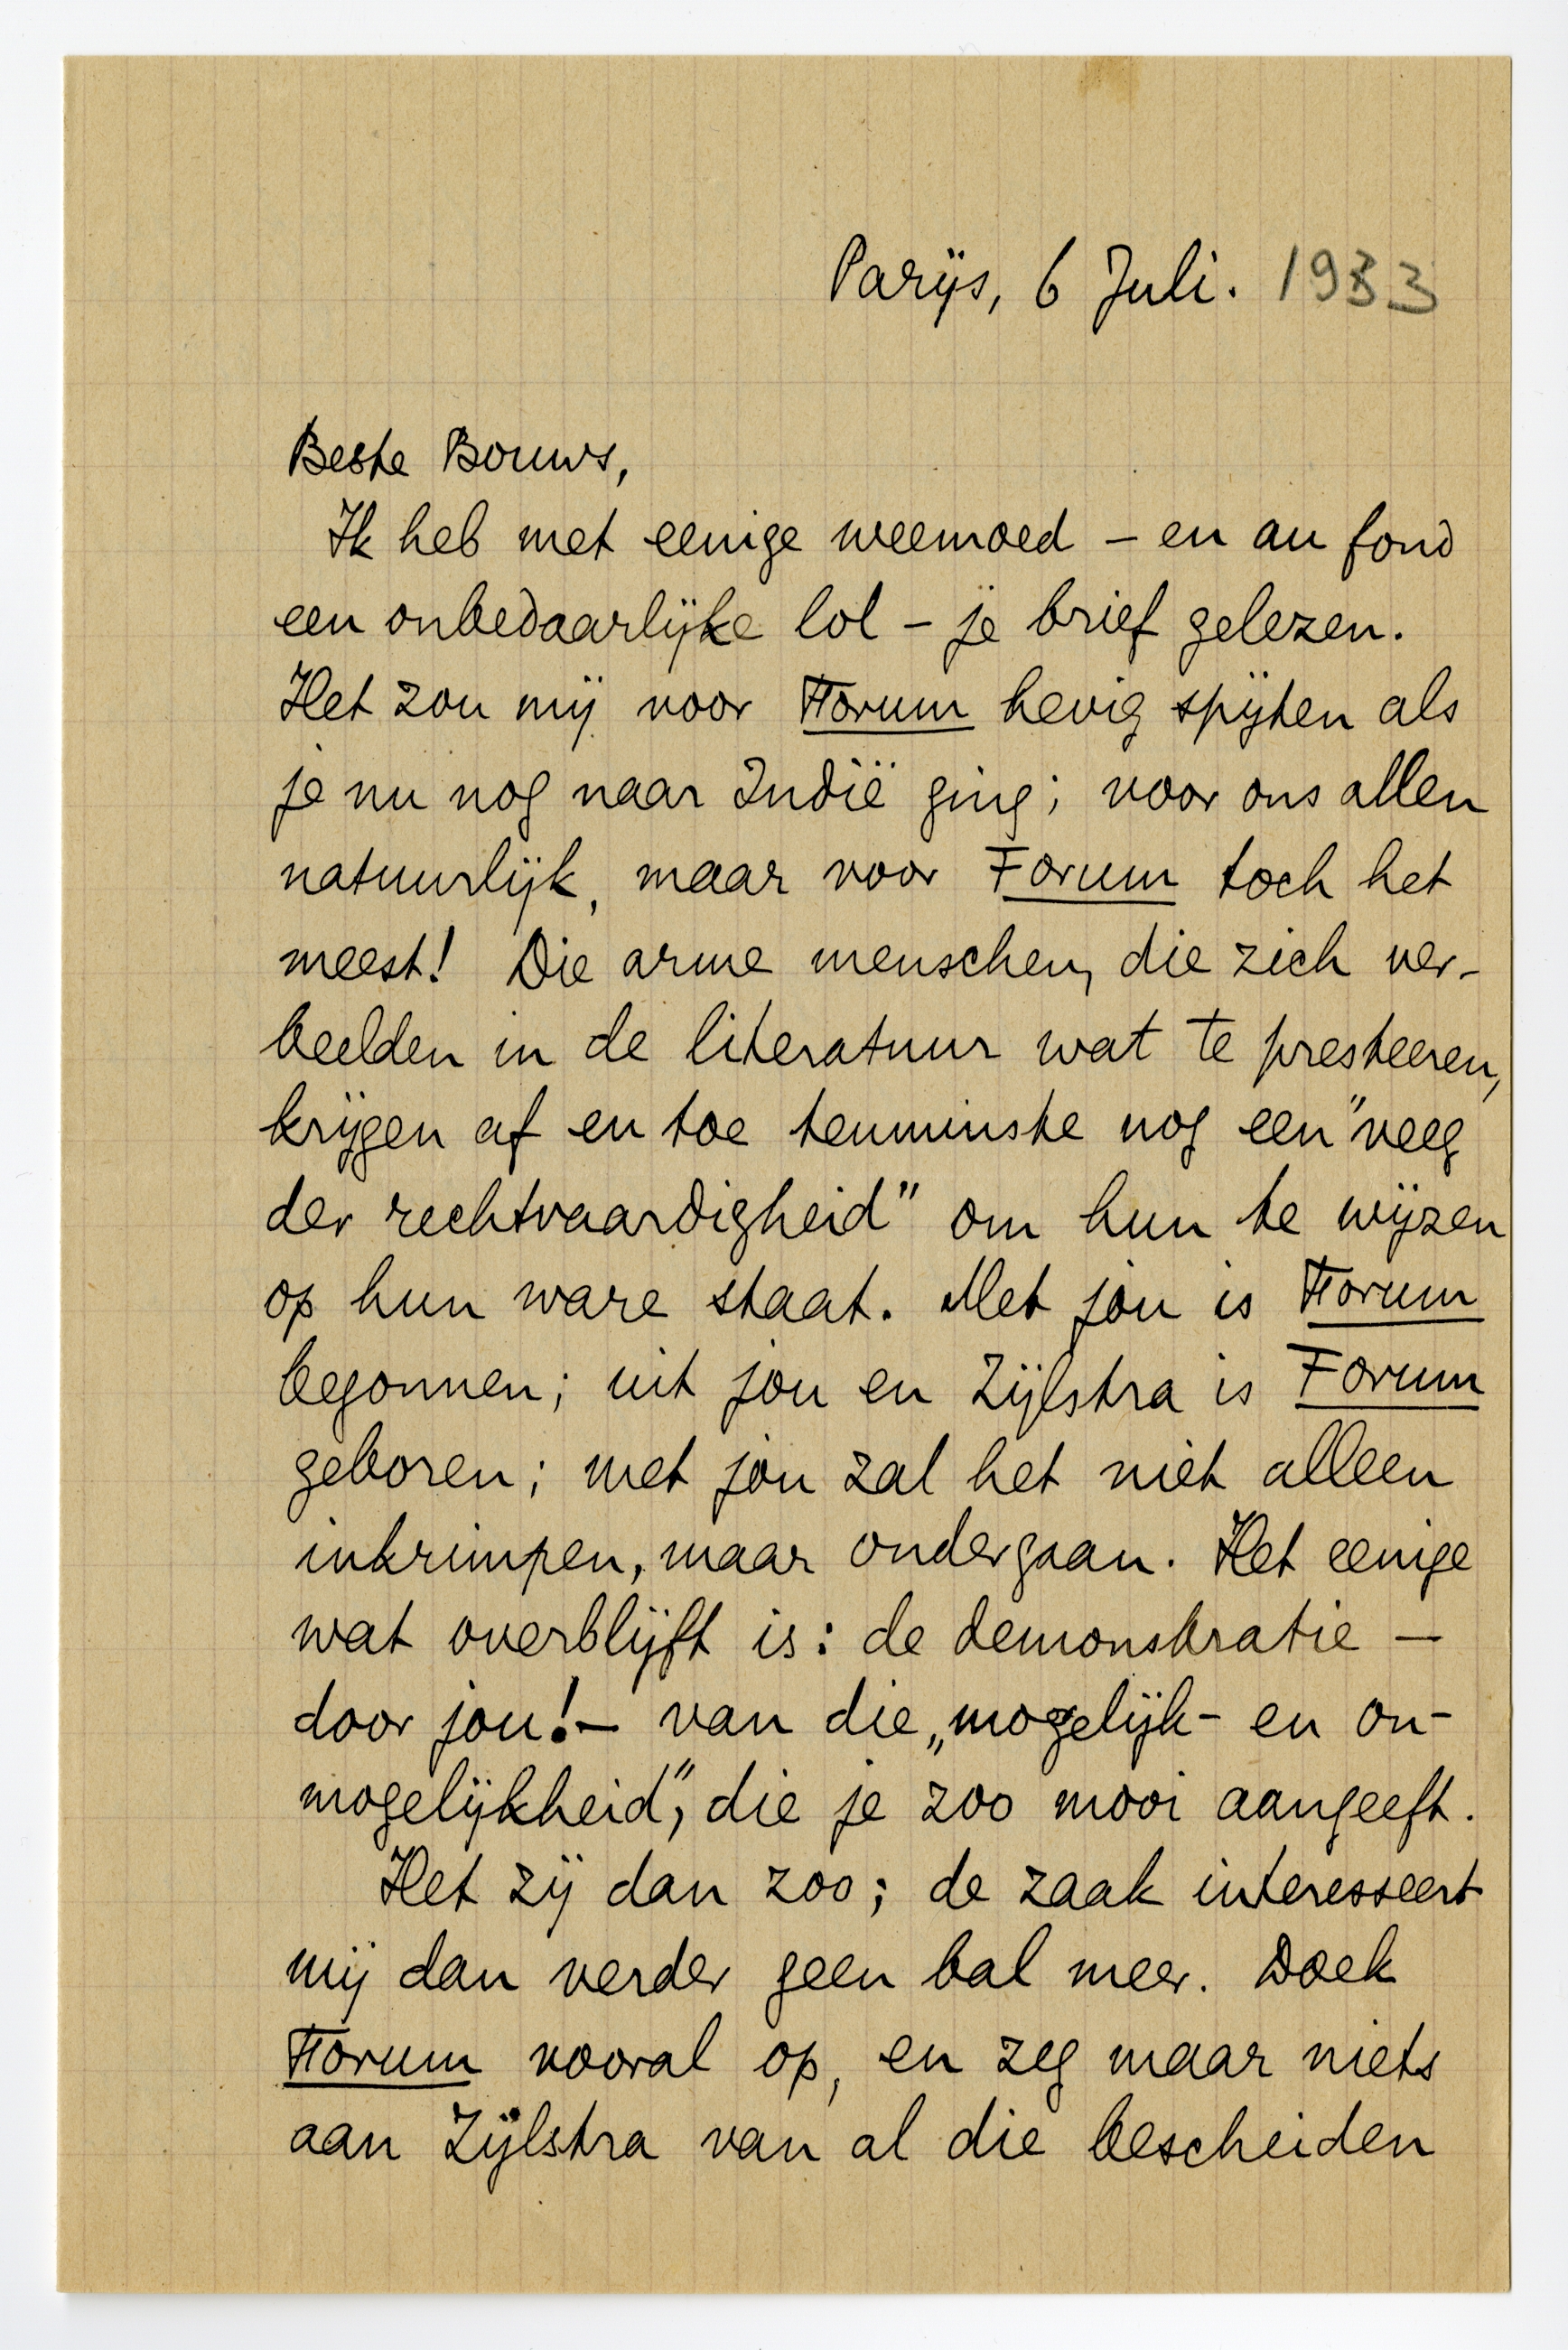 Parijs, 6 Juli. 1933
Beste Bouws,
Ik heb met eenige weemoed – en au fond
een onbedaarlijke lol – je brief gelezen.
Het zou mij voor Forum hevig spijten als
je nu nog naar Indië ging; voor ons allen
natuurlijk, maar voor Forum toch het
meest! Die arme menschen, die zich ver-
beelden in de literatuur wat te presteeren,
krijgen af en toe tenminste nog een "veeg
der rechtvaardigheid" om hun te wijzen
op hun ware staat. Met jou is Forum
begonnen; uit jou en Zijlstra is Forum
geboren; met jou zal het niet alleen
inkrimpen, maar ondergaan. Het eenige
wat overblijft is: de demonstratie –
door jou! – van die „mogelijk- en on-
mogelijkheid", die je zoo mooi aangeeft.
Het zij dan zoo; de zaak interesseert
mij dan verder geen bal meer. Doek
Forum vooral op, en zeg maar niets
aan Zijlstra van al die bescheiden